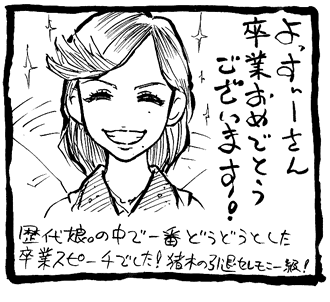 よっすぃーさん
卒業おめでとう
ございます!
歴代娘。の中で一番どうどうとした
卒業スピーチでした!猪木の引退セレモニー級!